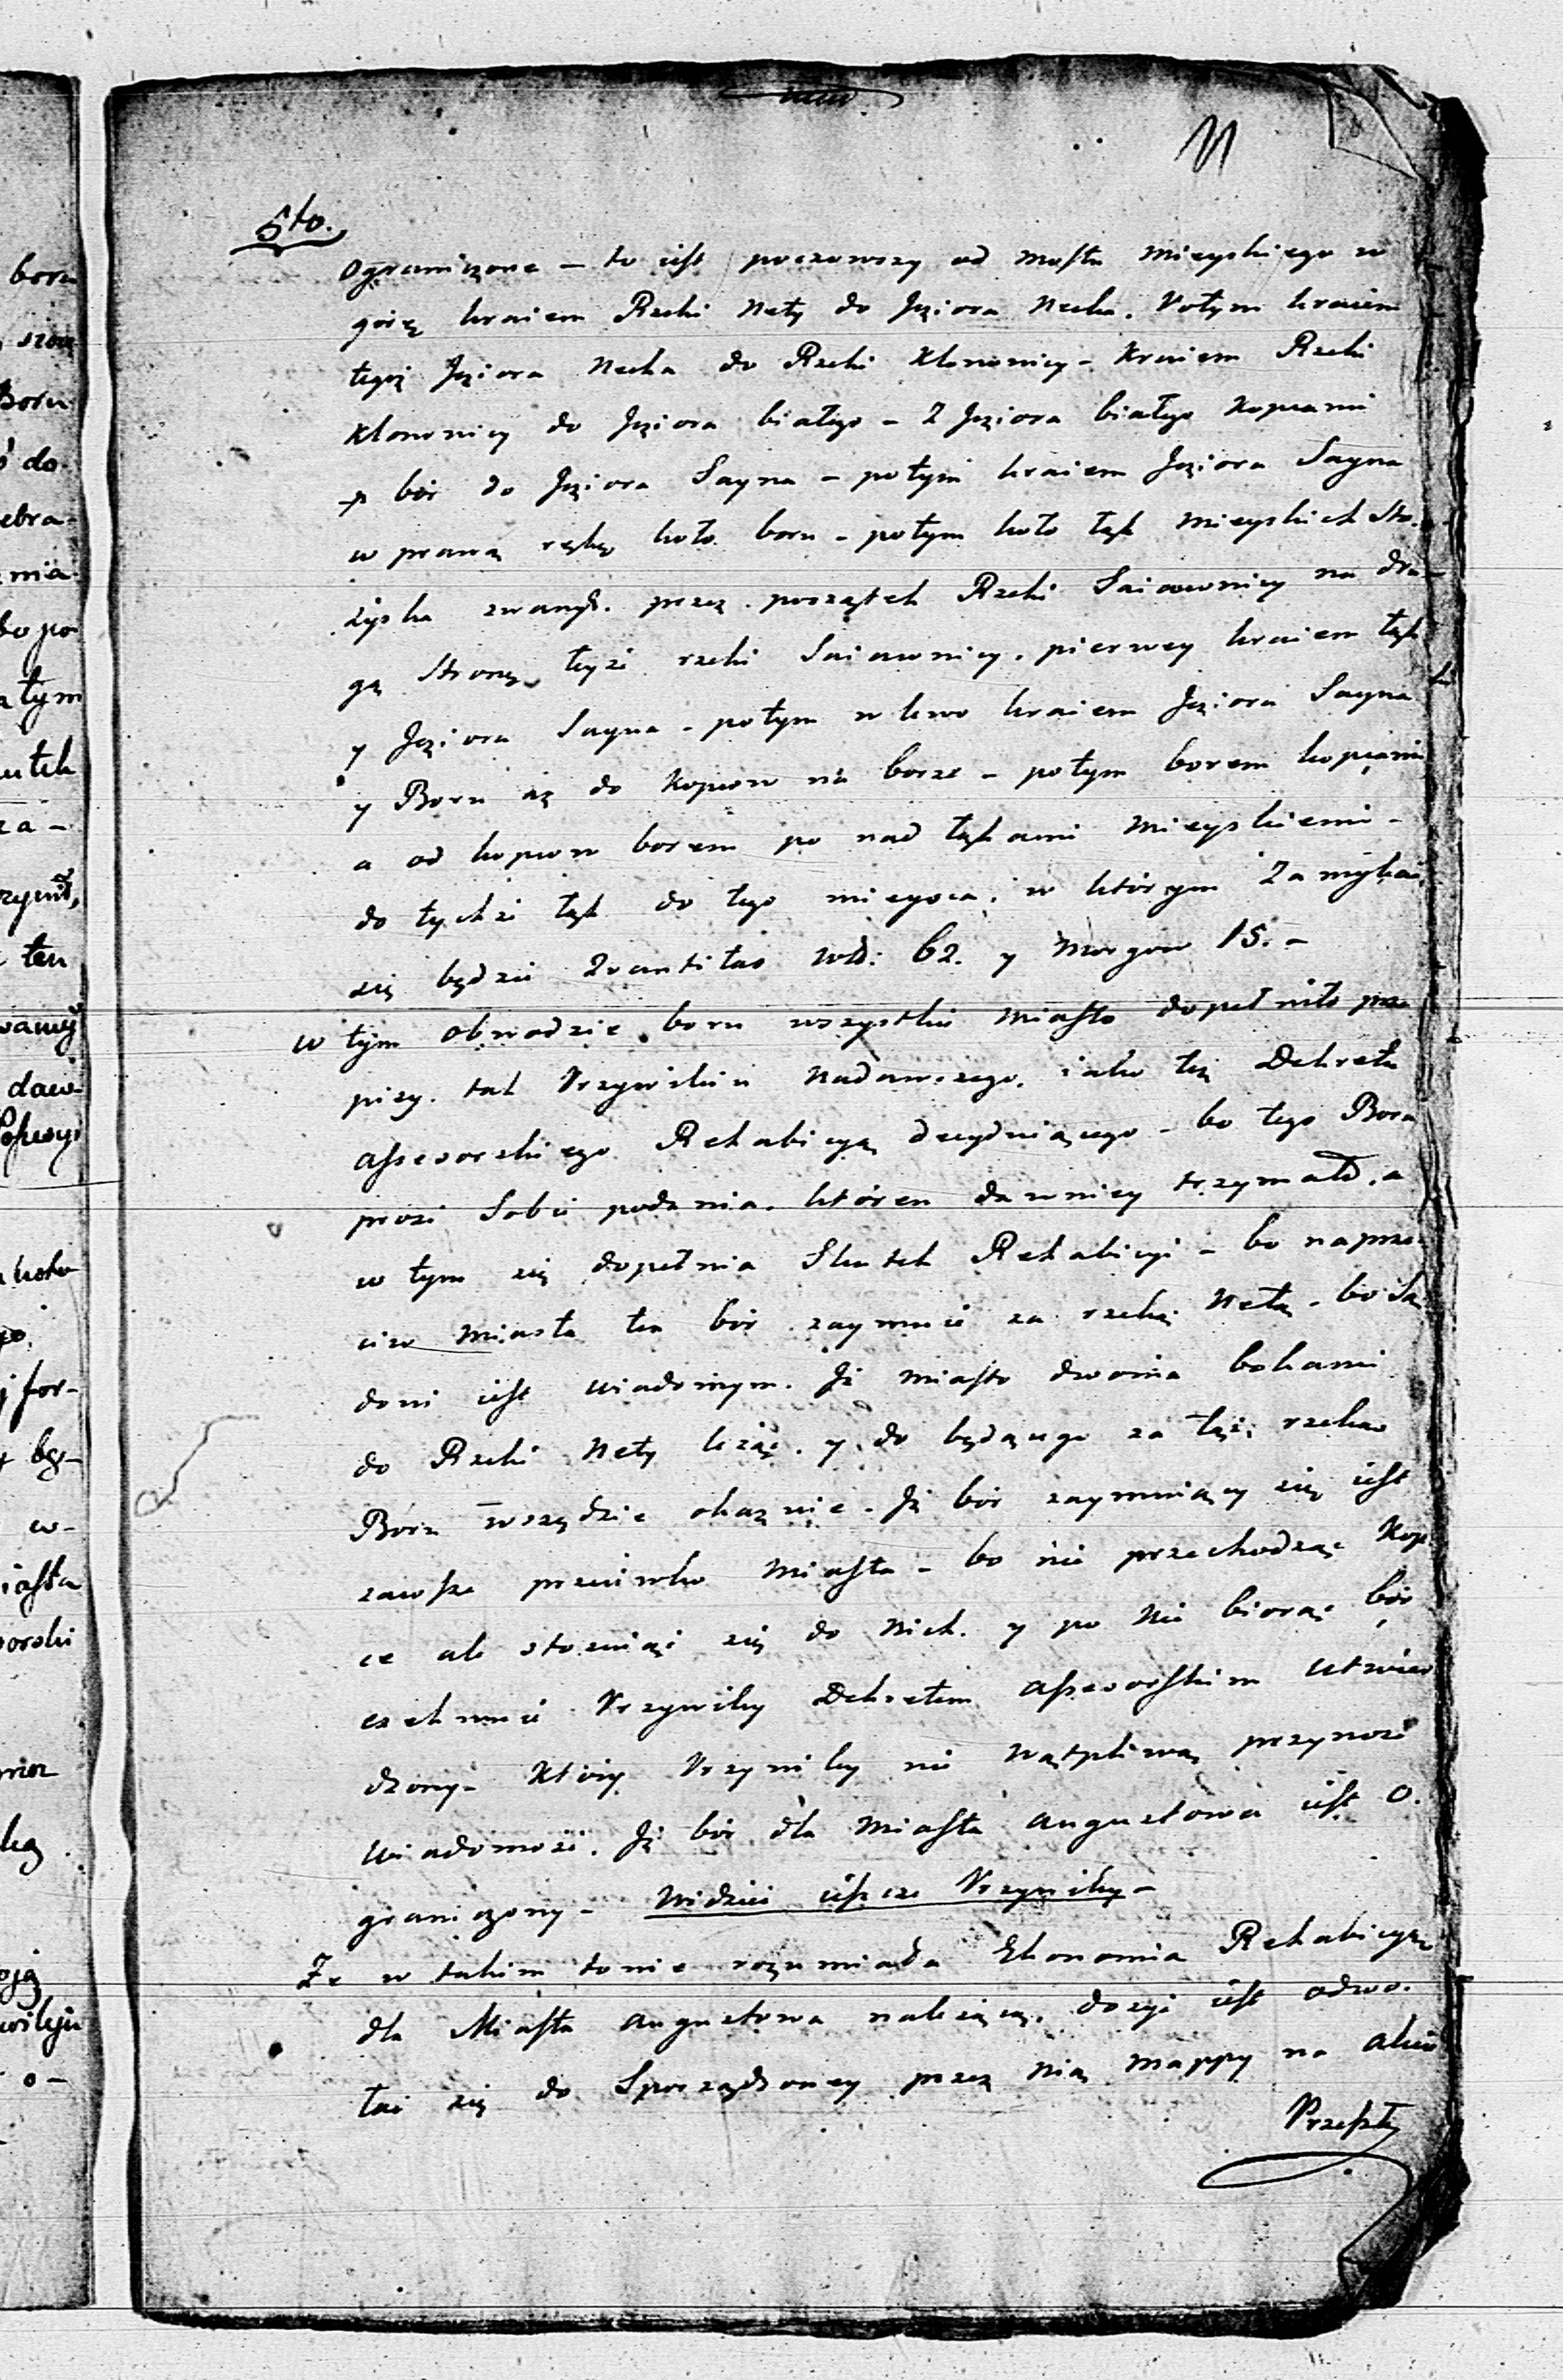 5to.
ograniczone – to iest poczowszy od mostu mieyskiego w
górę kraiem Rzeki Nety do Jeziora Necka. Potym kraiem
tegoż Jeziora Necka do Rzeki Klonowicy – Kraiem Rzeki
Klonowicy do Jeziora białego – Z Jeziora białego Kopcami
p bór do Jeziora Sayna – potym kraiem Jeziora Sayna
w prawą rękę koło boru – potym koło łąk mieyskich Sto-
żyska zwanych. przez początek Rzeki Saiownicy na dru-
gą stronę teyże rzeki Saiownicy. pierwey kraiem łąk
y Jeziora Sayna – potym w lewo kraiem Jeziora Sayna
y Boru aż do Kopcow na borze – potym borem kopcami
a od kopcow borem po nad łąkami mieyskiemi –
do tychże łąk do tego mieysca, w którym Zamykać
się będzie Quantitas Włł: 62. y Morgow 15. –
w tym obwodzie boru wszystkie miasto dopełniło prze
pisy. tak Przywileiu nadawczego, iako też Dekretu
assesorskiego Rehabicyą decyduiącego – bo tego Boru
prosi Sobie podania. któren dawniey trzymało, a
w tym się dopełnia Skutek Rehabicyi – bo naprze-
ciw miasta ten bór zaymuie za rzeką Netą – bo Są
doni iest wiadomym. Jż miasto dwoma bokami
do Rzeki Nety leżąc. y do będącego za tąż rzeką
Boru wszędzie okazuie – Jż bór zaymuiący się iest
zawsze przeciwko miasta – bo nie przechodząc Kop-
ce ale stosuiąc się do nich. y po nie biorąc bór
czehnuie Przywiley Dekretem assesorskim utwier
dzony – Który Przywiley nie wątpliwą przynosi
wiadomość. Jż bór dla miasta augustowa iest o-
graniczony – Widzieć ieszcze Przywiley –
Że w takim tonie rozumiała Ekonomia Rehabicyą
dla Miasta augustowa należącą. dosyć iest odwo-
łać się do Sporządzoney przez nią mappy na
Przeszły